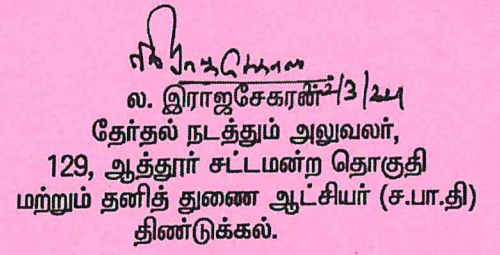 ல. இராஜசேகரன் 22/3/24
தேர்தல் நடத்தும் அலுவலர்,
129, ஆத்தூர் சட்டமன்ற தொகுதி
மற்றும் தனித் துணை ஆட்சியர் (ச.பா.தி)
திண்டுக்கல்.